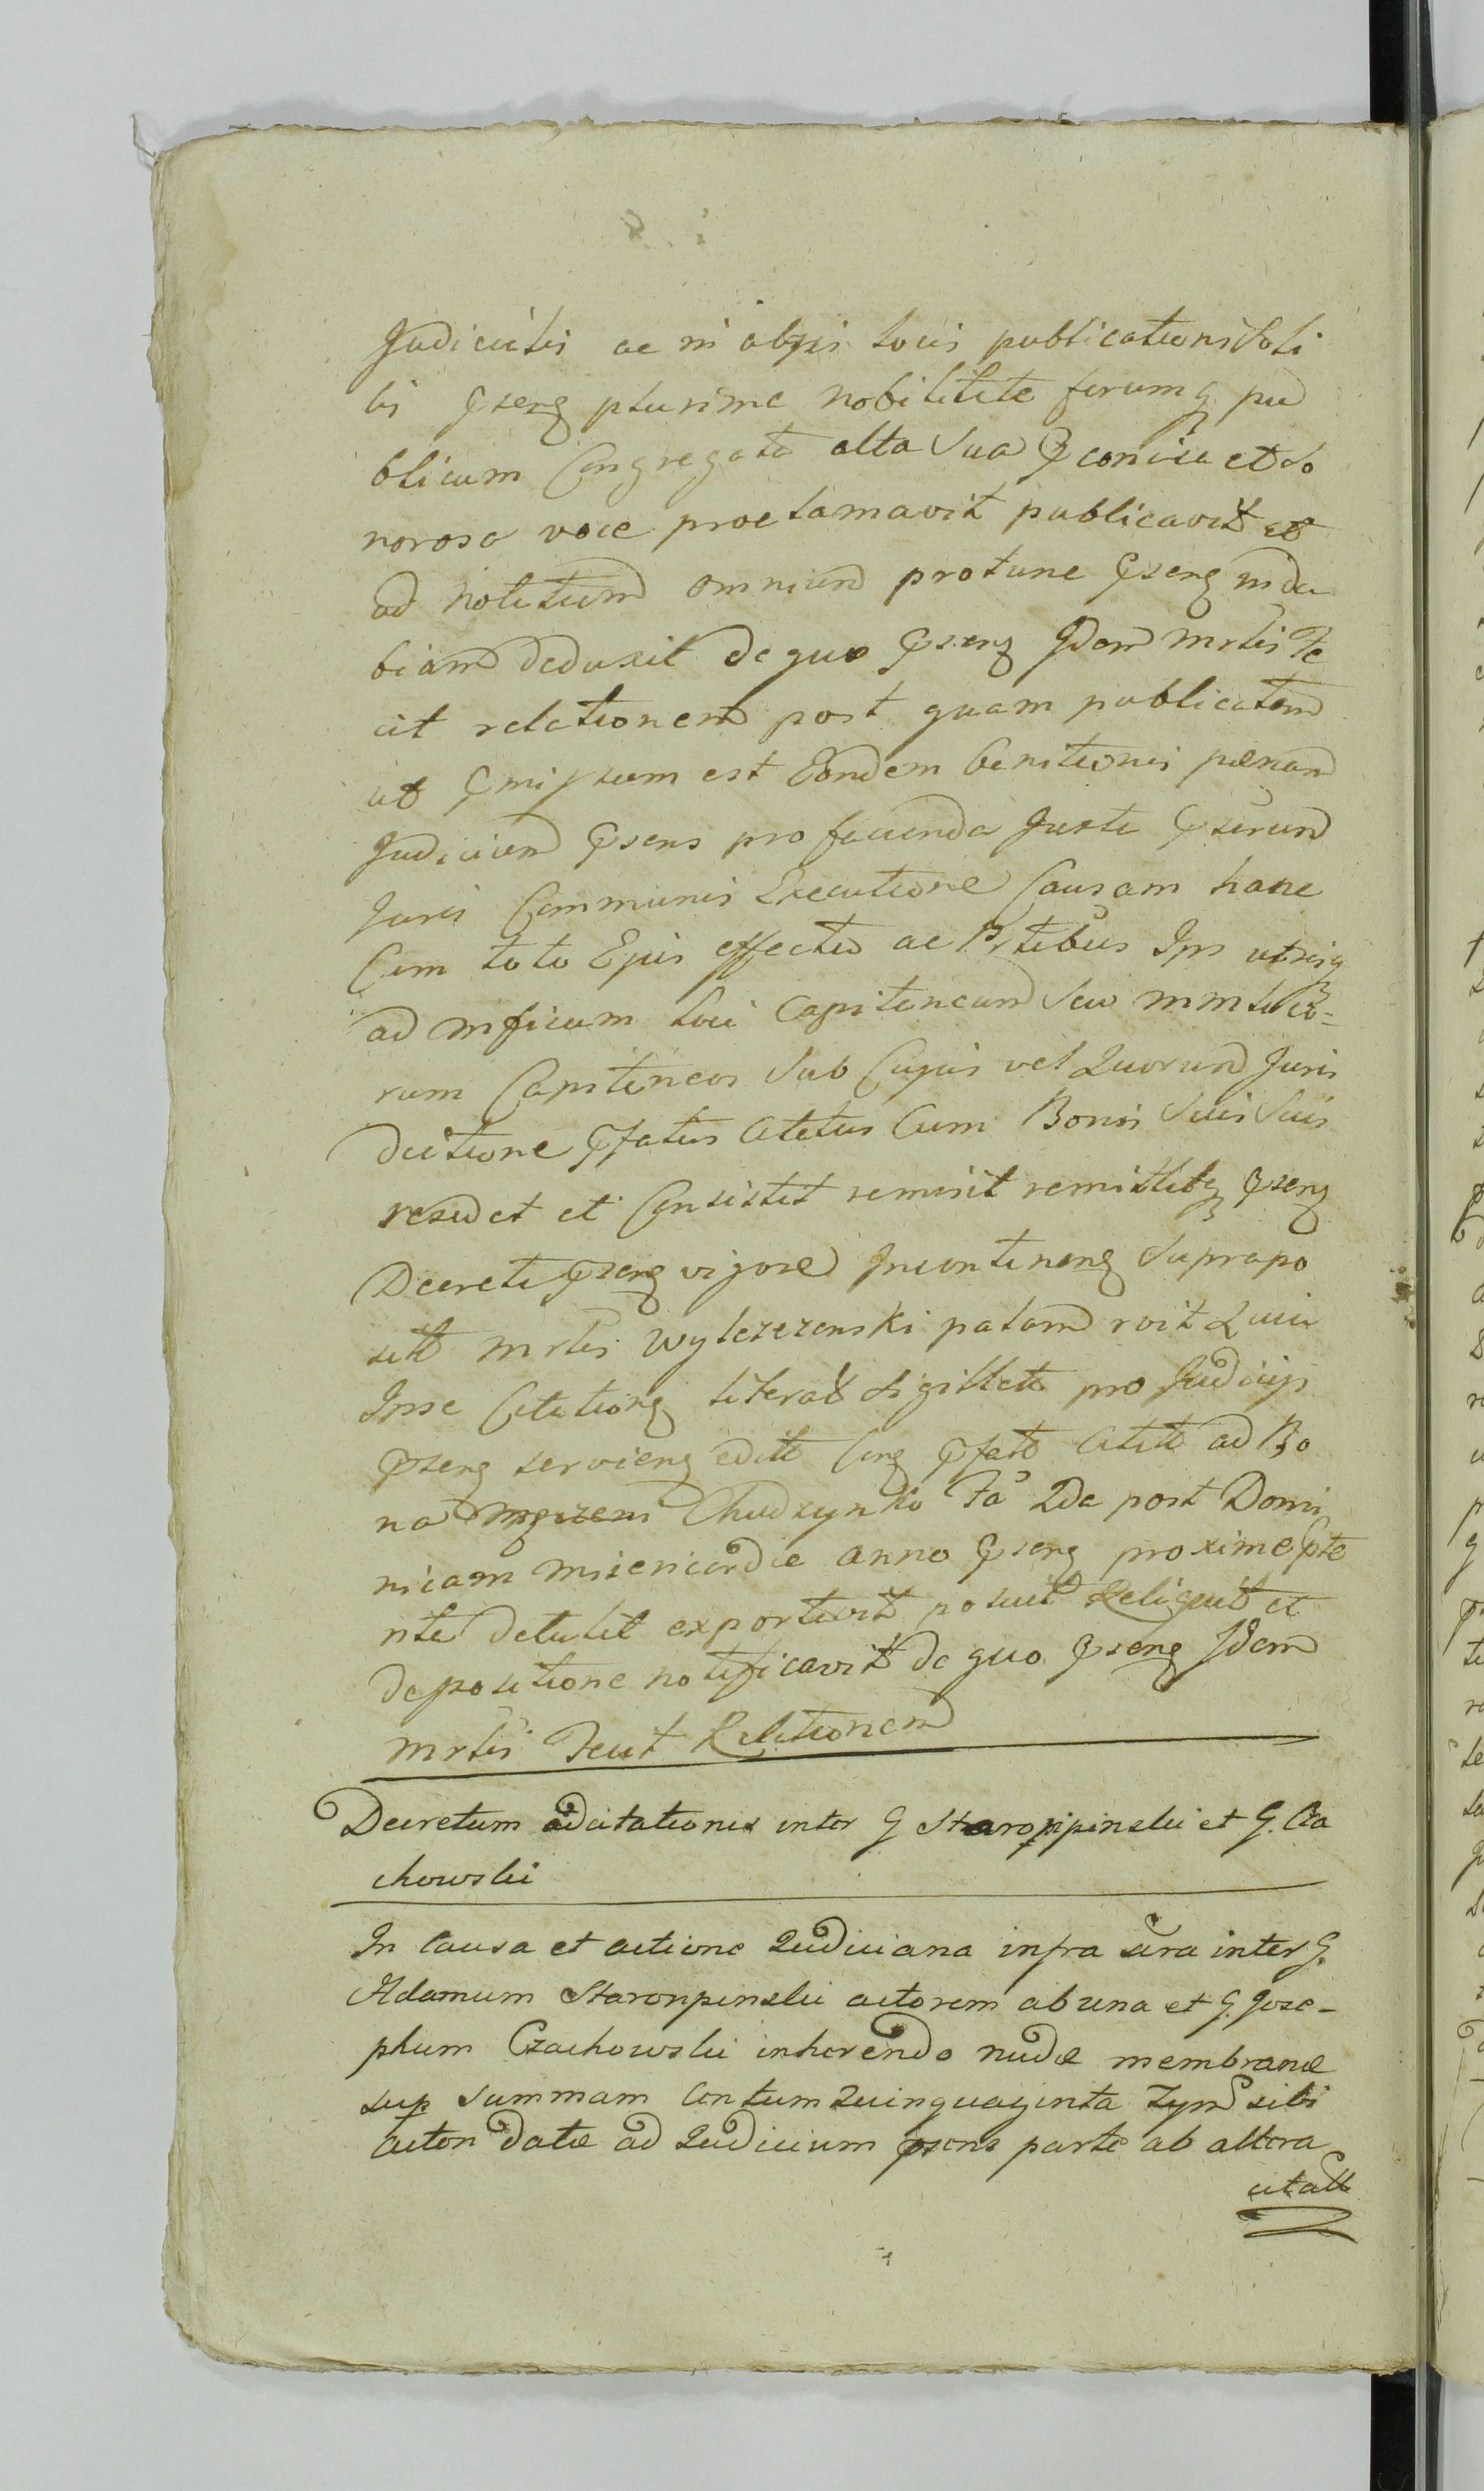 Judiciilis ac in alys locis publicationi soli
tis pseng plurima nobilitate forumq pu
blicum Congregata alta sua p concisa et so
norosa voce proclamavit publicavit et
ad notitiam omnium protunc pseng indu
biam deduxit de quo pseng Idem Mrlis Fe
cit relationem post quam publicatam
ut pmissum est Eandem banitionis pænam
Judicium psens pro facienda Juste psürum
Juris Communis Executione Causam hanc
Cum toto Ejus effectu ac Prtibus Ips utrisq
ad Mficum loci Capitaneum seu Mm loco=
rum Capitaneos sub Cujus vel Quorum Juris
dictione pfatus Citatus Cum Bonis suis
residet et Consistit remisit remittitq pseng
Decreti pseng vigore Incontineng suprapo
sitt Mrlis Wylezezenski palam rvit Quia
Ipse Citationg literat sigillat pro Judicijs
pseng servieng edit Cong pfat Citat ad Bo
na Chudzynko Fa 2da post Domi
nicam Misericordiæ anno pseng proxime pte
rita detulit exportavit posuit Reliquit et
depositione notificavit de quo pseng Idem
Mrlis Fecit Relationem
Decretum adcitationis inter G Staropipinski et G. Cza
chowski
In Causa et actione Judiciaria infra sïra inter G.
Adamum Staronpinski actorem ab una et G. Jose-
phum Czachowski inherendo nudæ membranæ
sup summam Centum Quinquaginta Tymf sibi
acton datæ ad Judicium psens parte ab altera
citatt